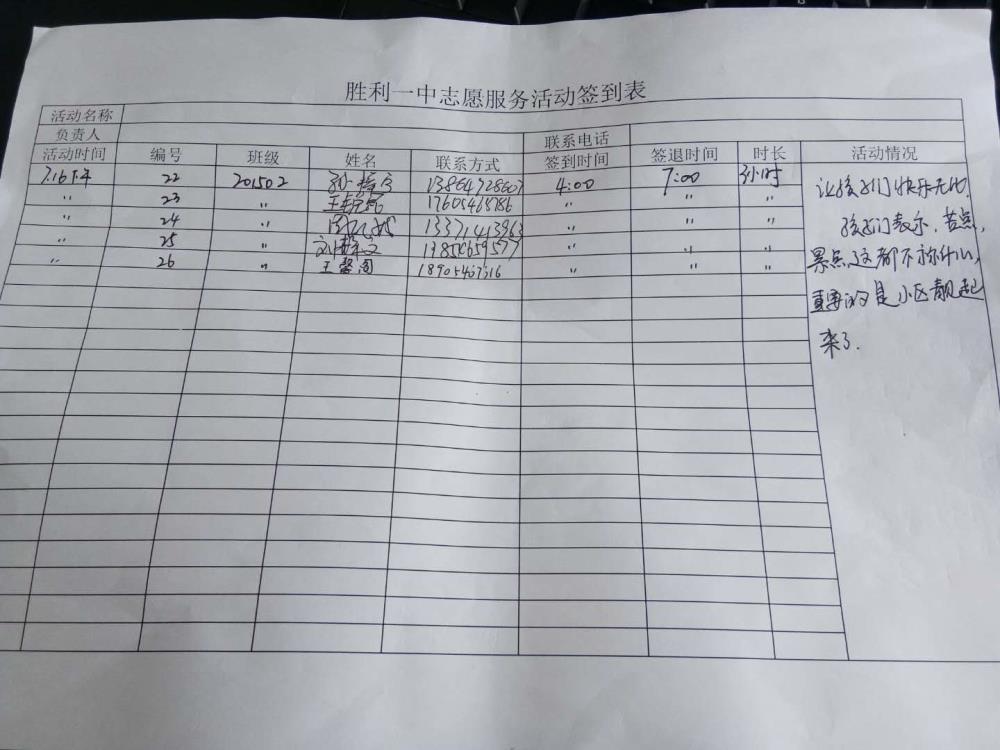 胜利一中志愿服务活动签到表
活动名称
负责人 联系电话
活动时间 编号 班级 姓名 联系方式 签到时间 签退时间 时长 活动情况
7.16下午 22 201502 孙 13864728607 4:00 7:00 3小时
〃 23 〃 王 17605468786 〃 〃 〃
〃 24 〃 13371413963 〃 〃 〃
〃 25 〃 刘 〃 〃 〃
〃 26 〃 王馨 18905467316 〃 〃 〃
让孩子们快乐无比,
孩子们表示,苦点,
累点,这都不称什么,
重要的是小区靓起
来了.